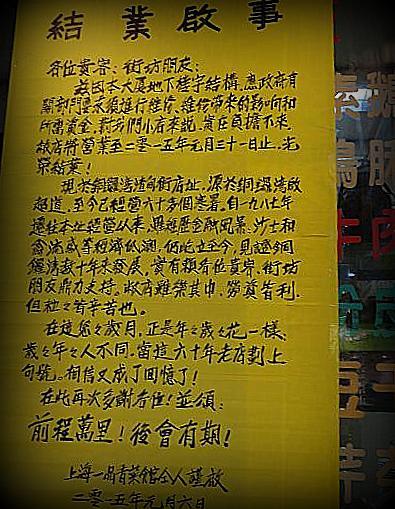 結業啟事
各位貴客、街坊朋友:
茲因本大廈地下樓宇結構,應政府有
關部門要求須進行維修,維修帶來的影响和
所需資金,對於們小店來説,實在負擔不來,
敝店將營業至二零一五年元月三十一日止,光
榮結業!
現於銅鑼灣渣甸街店址,源於銅鑼灣啟
超道,至今已經營六十多個寒暑,自一九八七年
遷往本址經營以來,歷經歷金融風暴、沙士和
金融海嘯等經濟低潮,仍屹立至今,見證銅
鑼灣數十年來發展,實有賴各位貴客、街坊
朋友鼎力支持,敝店雖樂其中,勞莫皆利,
但粒々皆辛苦也。
在這悠々歲月,正是年々歲々花一樣,
歲々年々人不同,當這六十年老店劃上
句號。相信又成了回憶了!
在此再次多謝各位!並頌:
前程萬里!後會有期!
上海一品香菜館仝人謹啟
二零一五年元月六日
牛肉